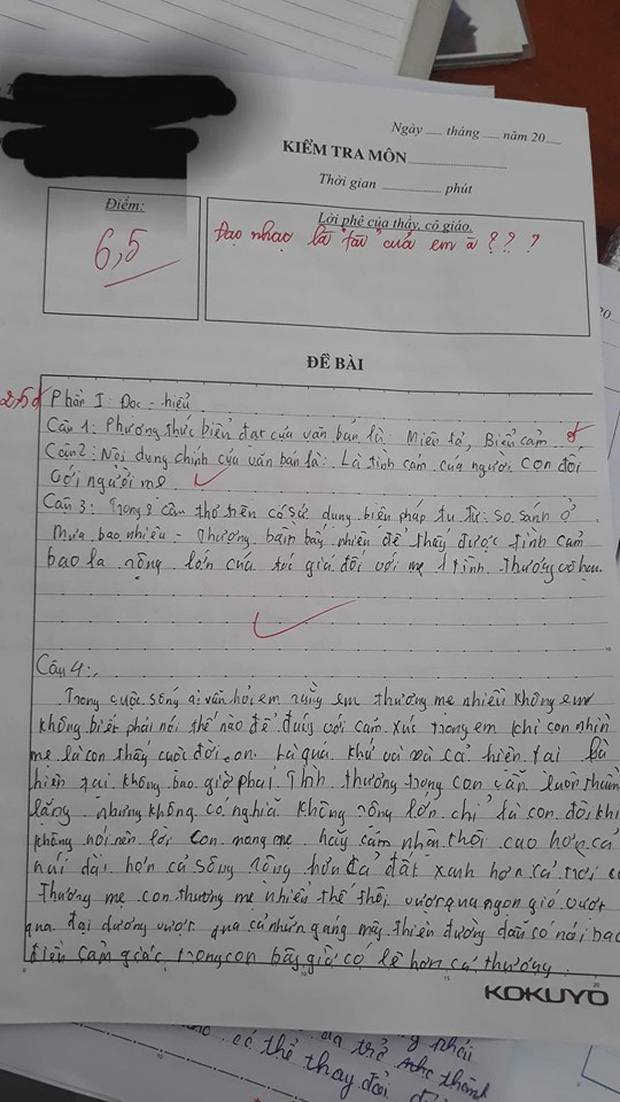 Ngày ___ tháng ___ năm 20___
KIỂM TRA MÔN
Thời gian ............ phút
Điểm:
6,5
Lời phê của thầy, cô giáo.
Đạo nhạc là "tài" của em à ? ? ?
ĐỀ BÀI
2,5đ
Phần I: Đọc - hiểu
Câu 1: Phương thức biểu đạt của văn bản là: Miêu tả, Biểu cảm
Câu 2: Nội dung chính của văn bản là: Là tình cảm của người con đối
với người mẹ
Câu 3: Trong 2 câm thơ trên có sử dụng biện pháp tu từ: so sánh ở
Mưa bao nhiêu - thương bầm bấy nhiêu để thấy được tình cảm
bao la rộng lớn của tác giả đối với mẹ 1 tình thương vô hạn.
Câu 4:
Trong cuộc sống ai vẫn hỏi em rằng em thương mẹ nhiều không em
không biết phải nói thế nào để đúng với cảm xúc trong em khi con nhìn
mẹ là con thấy cuộc đời con. Là quá khứ và và cả hiện tại là
hiện tại không bao giờ phai. Tình thương trong con vẫn luôn thầm
lặng nhưng không có nghĩa không rộng lớn chỉ là con đôi khi
không nói nên lời con mong mẹ hãy cảm nhận thôi cao hơn cả
núi dài hơn cả sông rộng hơn cả đất xanh hơn cả trời
thương mẹ con thương mẹ nhiều thế thôi vượt qua ngọn gió vượt
qua đại dương vượt qua cả những gáng mây thiên đường dẫu có nói bao
điều cảm giác trong con bây giờ có lẽ hơn cả thương.
KOKUYO
phải
trở thành
có thể thay đổi